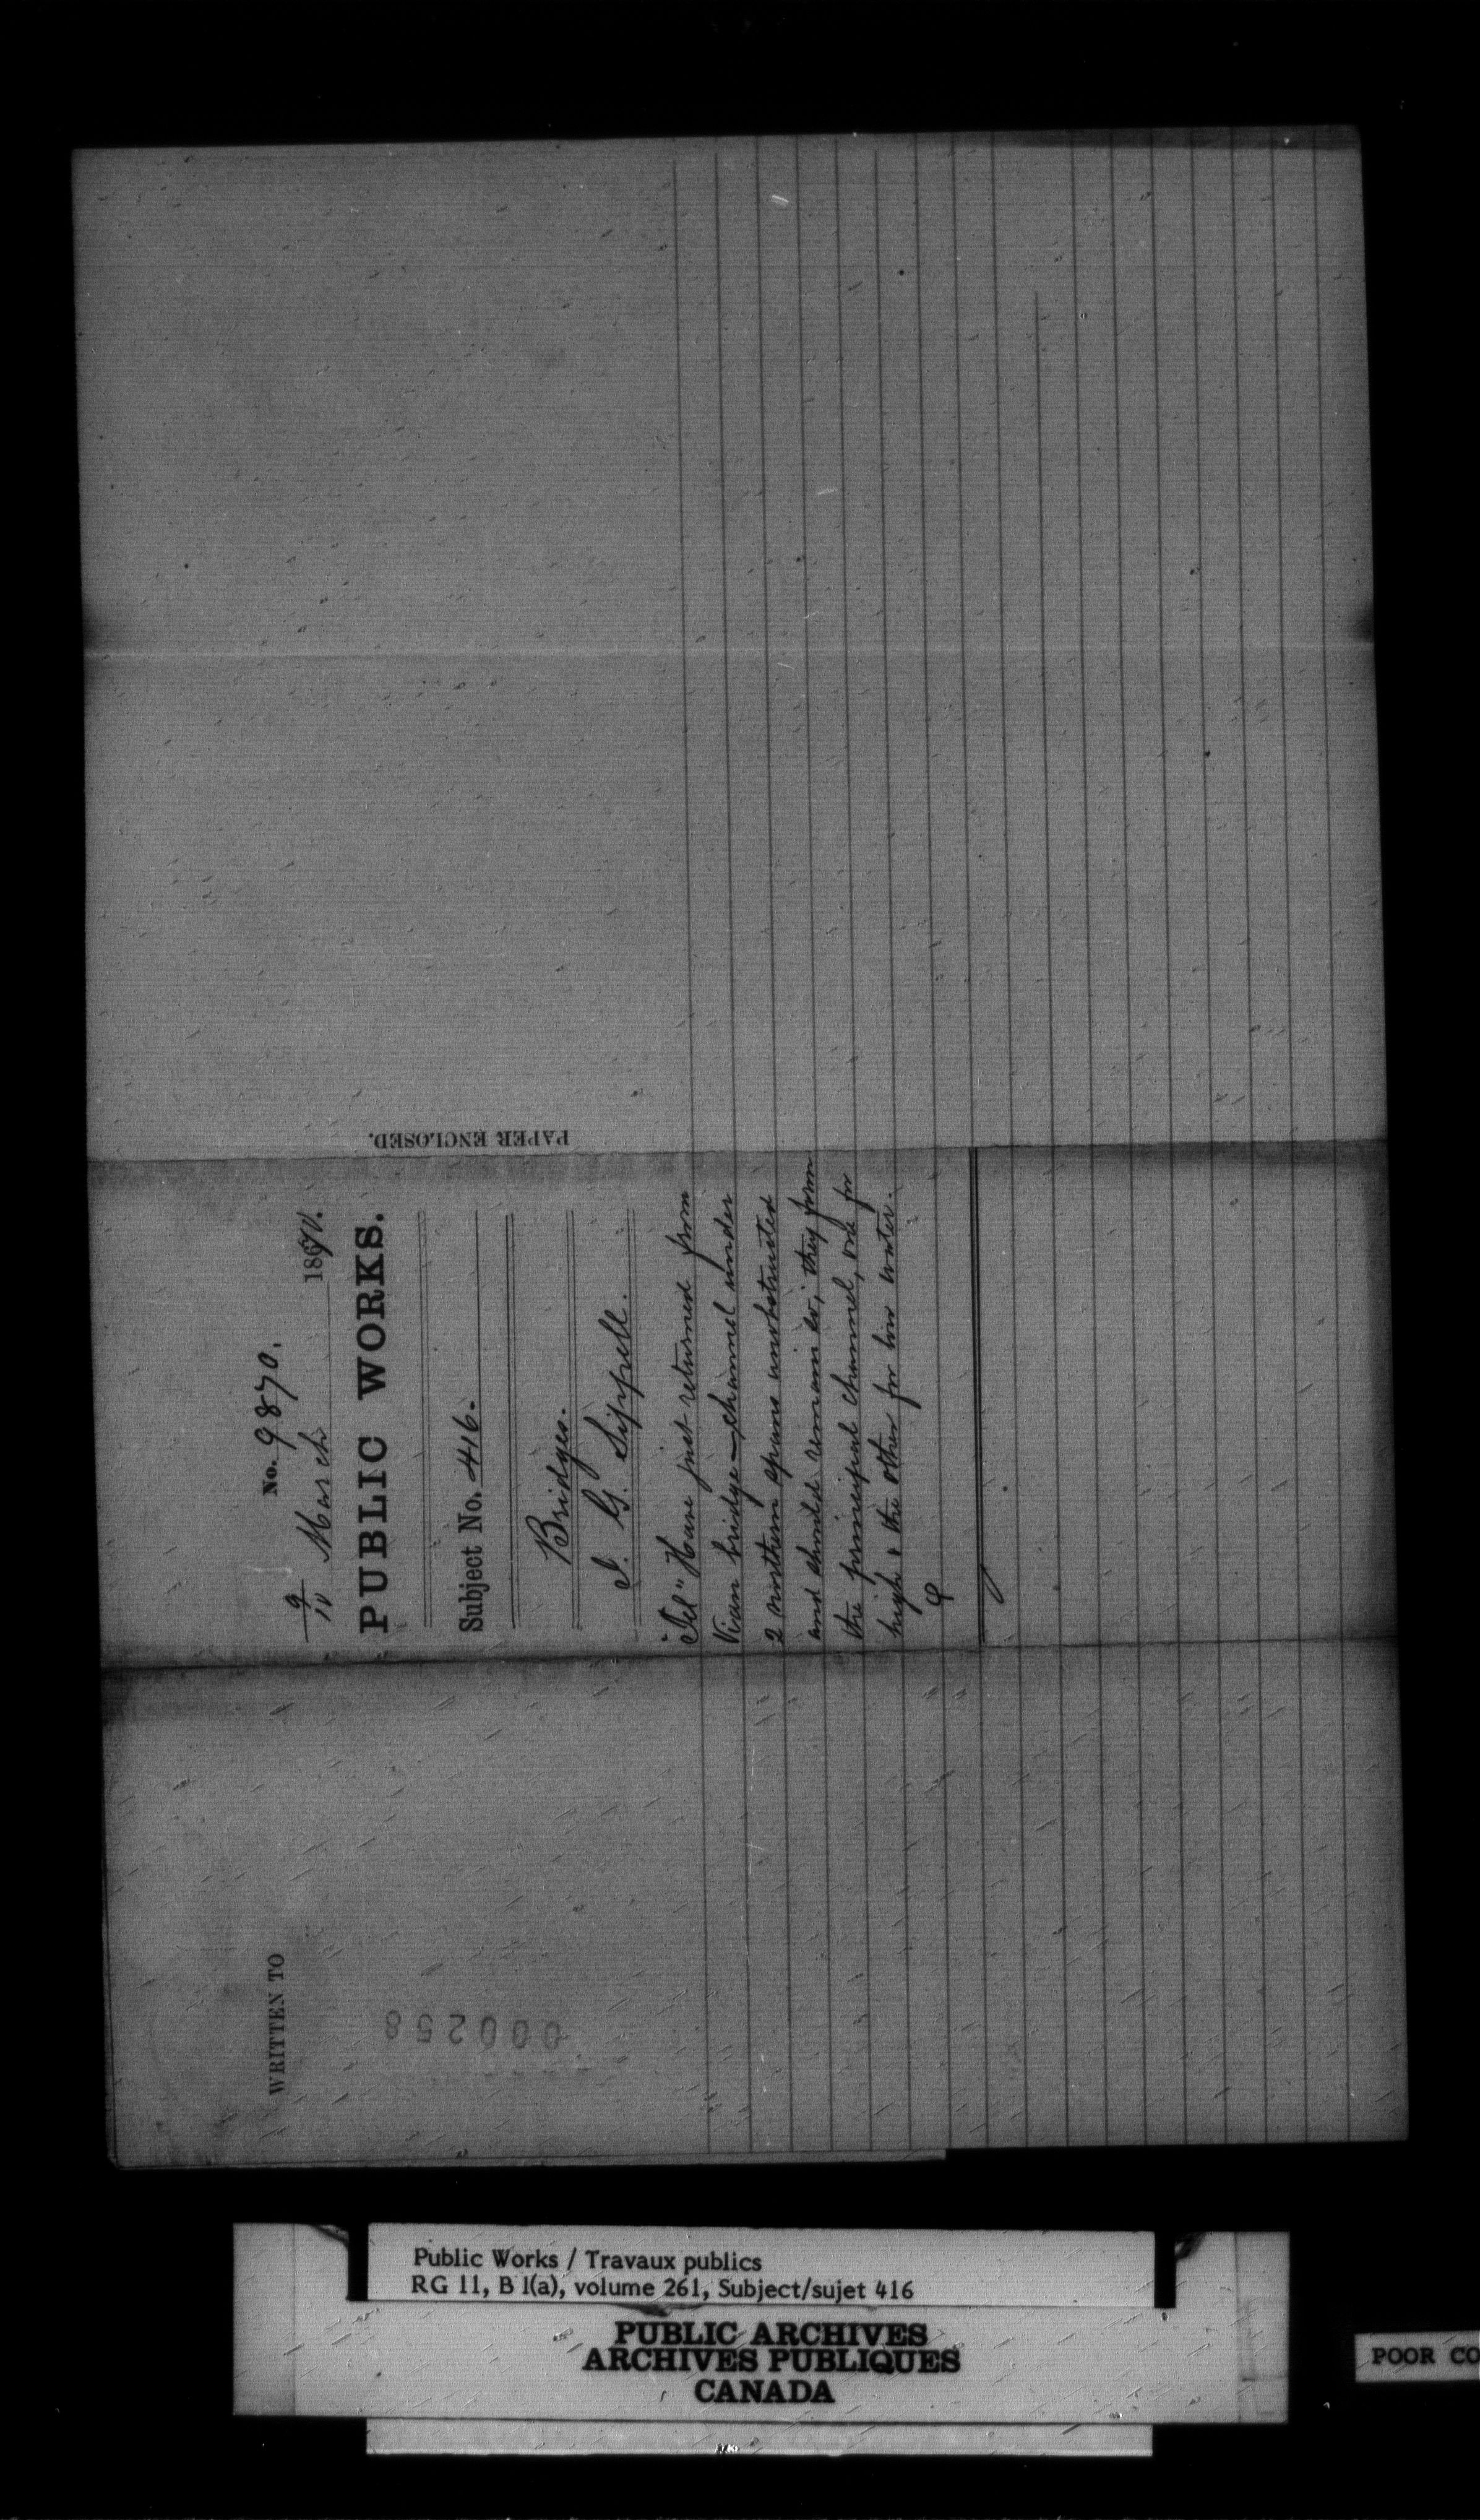 No. 9870.
9/10 March 1870.
PUBLIC WORKS.
Subject No. 416.
Bridges.
J. G. Sippell.
"Tel" Have just returned from
Viau bridge — channel under
2 northern spans unobstructed
and should remain so; they form
the principal channel, one for
high & the other for low water.
PAPER ENCLOSED.
WRITTEN TO
000258
Public Works / Travaux publics
RG 11, B 1(a), volume 261, Subject/sujet 416
PUBLIC ARCHIVES
ARCHIVES PUBLIQUES
CANADA
POOR CO